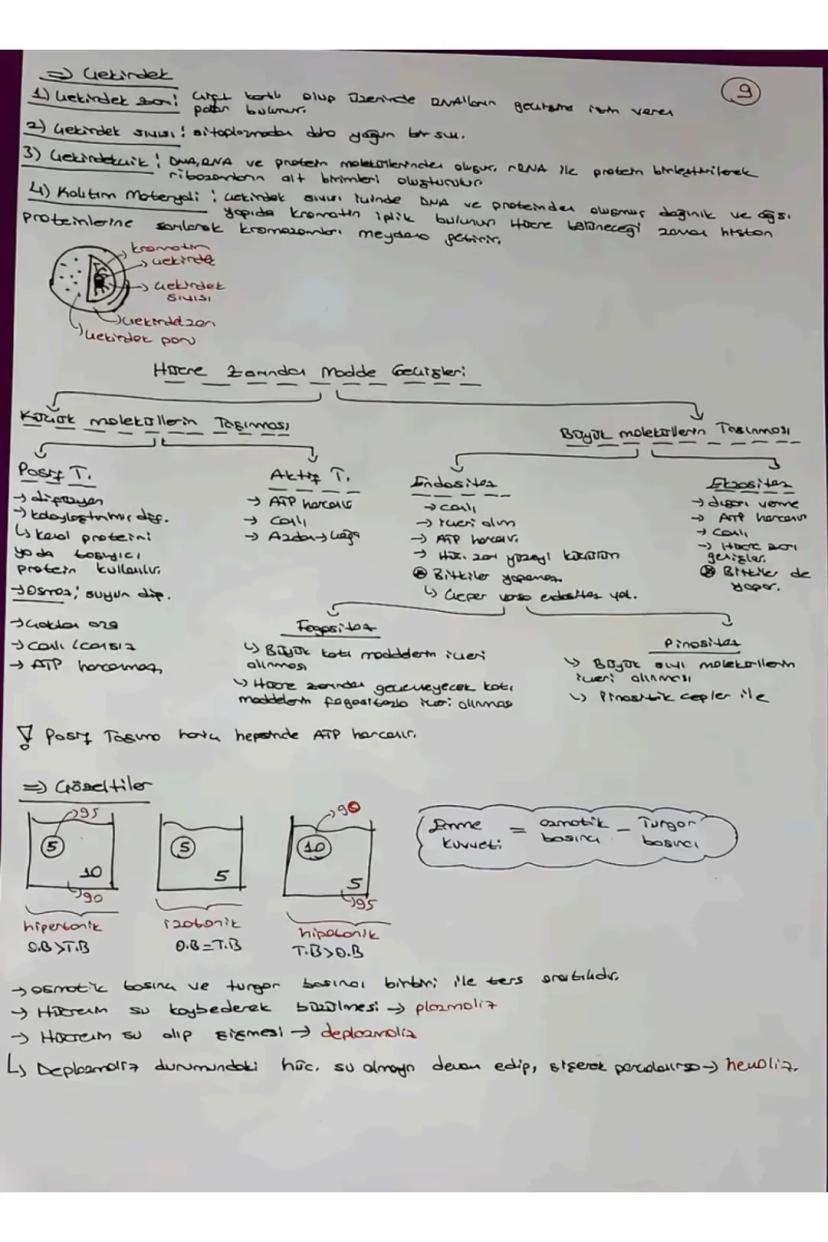 9
⇒ Çekirdek
1) Çekirdek zarı: Çift katlı olup üzerinde RNA'ların geçişine izin veren
porlar bulunur.
2) Çekirdek sıvısı: sitoplazmadan daha yoğun bir sıvı.
3) Çekirdekçik: DNA, RNA ve protein moleküllerinden oluşur. rRNA ile protein birleştirilerek
ribozomların alt birimleri oluşturulur.
4) Kalıtım Materyali: çekirdek sıvısı içinde DNA ve proteinden oluşmuş dağınık ve ağsı
yapıda kromatin iplik bulunur. Hücre bölüneceği zaman histon
proteinlerine sarılarak kromozomları meydana getirir.
kromatin
çekirdek
çekirdek
sıvısı
çekirdek zarı
çekirdek poru
Hücre Zarından Madde Geçişleri
Küçük moleküllerin Taşınması
Büyük moleküllerin Taşınması
Pasif T.
→ difüzyon
→ kolaylaştırılmış dif.
↳ kanal proteini
ya da taşıyıcı
protein kullanılır.
→ Osmoz; suyun dif.
→ çoktan aza
→ canlı / cansız
→ ATP harcanmaz.
Aktif T.
→ ATP harcanır
→ Canlı
→ Azdan → çoğa
Endositoz
→ canlı
→ içeri alım
→ ATP harcanır.
→ Hüc. zarı yüzeyi küçülür
⊛ Bitkiler yapamaz.
↳ Çeper varsa endositoz yok.
Ekzositoz
→ dışarı verme
→ ATP harcanır
→ canlı
→ Hücre zarı
genişler.
⊛ Bitkiler de
yapar.
Fagositoz
↳ Büyük katı maddelerin içeri
alınması
↳ Hücre zarından geçemeyecek katı
maddelerin fagositozla içeri alınması
Pinositoz
↳ Büyük sıvı moleküllerin
içeri alınması
↳ Pinositik cepler ile
! Pasif Taşıma hariç hepsinde ATP harcanır.
⇒ Çözeltiler
95
5
10
90
hipertonik
O.B>T.B
5
5
izotonik
O.B=T.B
90
10
5
95
hipotonik
T.B>O.B
Emme kuvveti = osmotik basıncı - Turgor basıncı
→ osmotik basınç ve turgor basıncı birbiri ile ters orantılıdır.
→ Hücrenin su kaybederek büzülmesi → plazmoliz
→ Hücrenin su alıp şişmesi → deplazmoliz
↳ Deplazmoliz durumundaki hüc. su almaya devam edip, şişerek parçalanırsa → hemoliz.